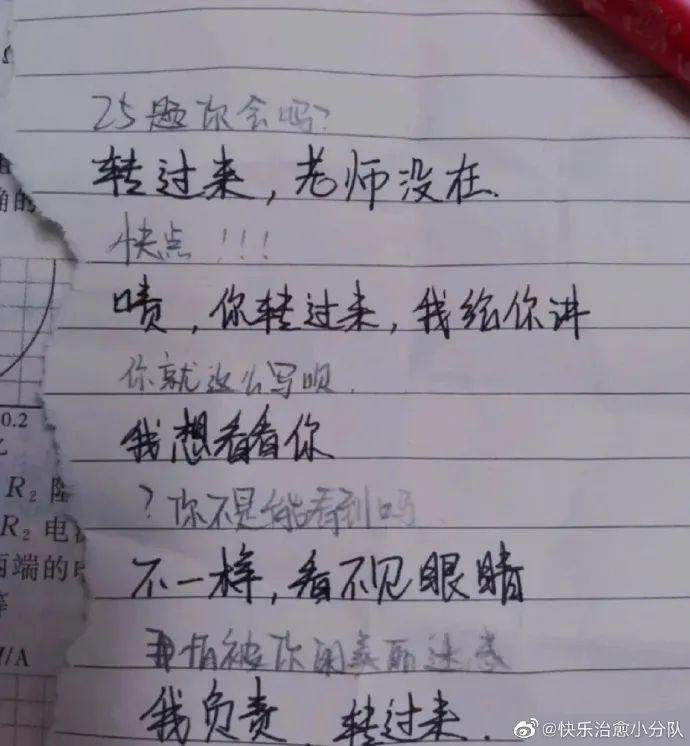 25题你会吗?
转过来,老师没在.
快点!!!
啧,你转过来,我给你讲
你就这么写呗.
我想看看你
?你不是能看到吗
不一样,看不见眼睛
怕被你的美丽迷惑
我负责.转过来.
角的
0.2
R₂ 阻
R₂ 电
两端的电
/A
@快乐治愈小分队